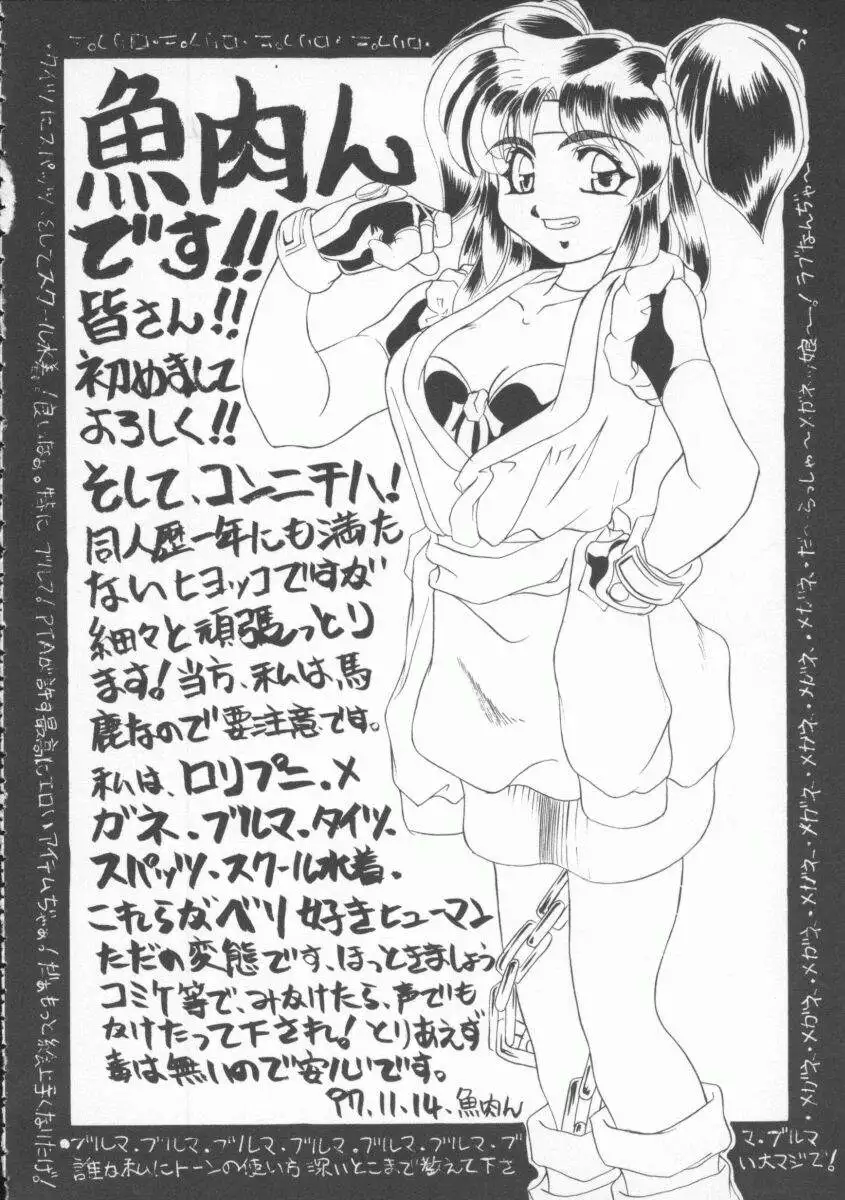 魚肉ん
です!!
皆さん!!
初めまして
よろしく!!
そして、コンニチハ!
同人歴一年にも満た
ないヒヨッコですが
細々と頑張っとり
ます!当方、私は、馬
鹿なので要注意です。
私は、ロリプニ、メ
ガネ、ブルマ、タイツ、
スパッツ、スクール水着、
これらがベリ好きヒューマン
ただの変態です、ほっときましょう
コミケ等で、みかけたら、声でも
かけたって下され!とりあえず
毒は無いので安心です。
97.11.14.魚肉ん
・ロリプニ・ロリプニ・ロリプニ・ロリプニ
っ!
・タイツにスパッツ、そしてスクール水着!良いなぁ。特にブルマ!PTAが許す最高にエロいアイテムぢゃぁ!だぁもっと絵上手くなりたげ!
・メガネ・メガネ・メガネ・メガネ・メガネ・メガネ・メガネ・だ〜らっしゃ〜メガネッ娘〜!ラブなんぢゃ〜
・ブルマ・ブルマ・ブルマ・ブルマ・ブルマ・ブルマ・ブ マ・ブルマ
誰か私にトーンの使い方 深いとこまで教えて下さ い大マジで!